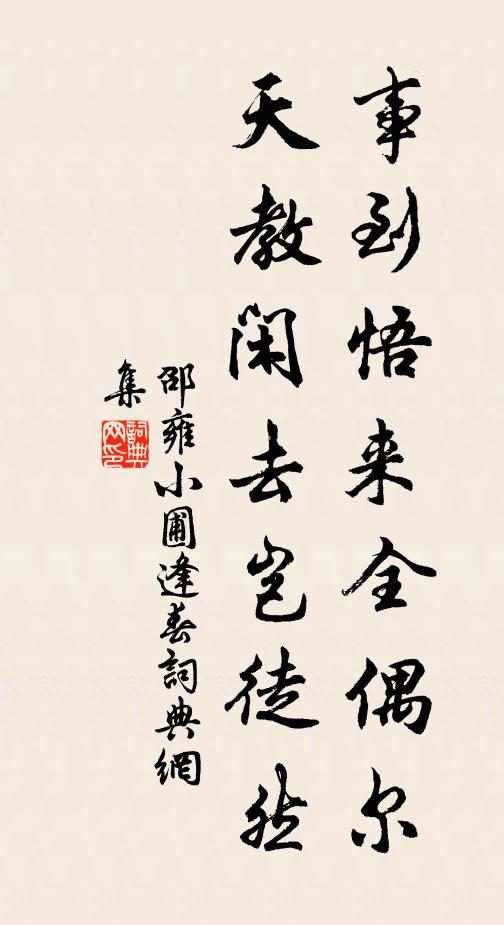 事到悟来全偶尔
天教闲去岂徒然
邵雍小圃逢春詞典網
集
詞典
网印